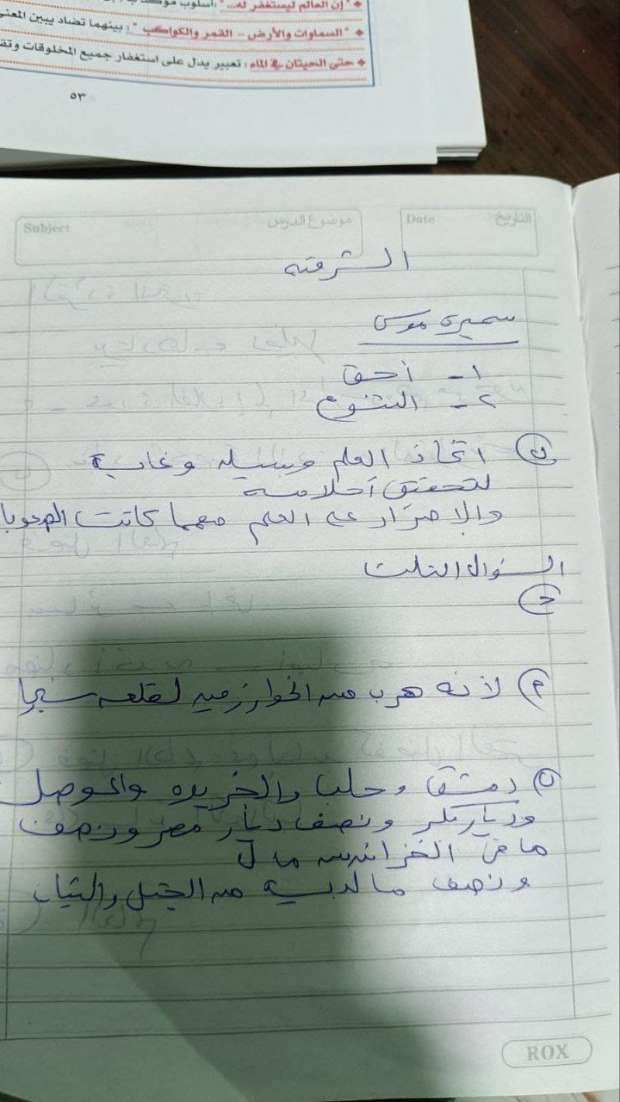 "إن العالم ليستغفر له..." : أسلوب
"السماوات والأرض - القمر والكواكب" : بينهما تضاد يبين المعنى
حتى الحيتان في الماء : تعبير يدل على استغفار جميع المخلوقات
٥٣
Subject موضوع الدرس Date التاريخ
الشرقيه
سميرة موسى
١- أحق
٢- التنوع
اتخاذ العلم وسيله وغاية
لتحقيق أحلامه
والاصرار على العلم مهما كانت الصعوبا
السؤال التلت
ج
م لأنه هرب من الخوارزميه لقلعه سنجا
ن دمشق وحلب والخريده والموصل
وديار بكر ونصف ديار مصر ونصف
ما فى الخزائن من مال
ونصف ما لديه من الخيل والتياب
ROX